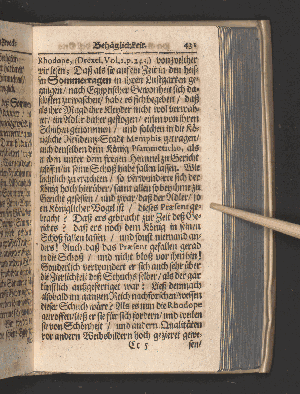 Behäglichkeit. 431
Rhodope, (Drexel, Vol. 2. p. 245.) von welcher
wir lesen; Daß als sie auf ein Zeit in den heiß-
sten Sommertagen in ihrem Lustgarten ge-
gangen / nach Egyptischer Gewonheit sich da-
selbsten zu waschen / habe es sich begeben / daß
als ihre Mägd der Kleyder nicht wol verwah-
ret / ein Adler daher geflogen / einen von ihren
Schuhen genommen / und solchen in die Kö-
nigliche Residenz-Stadt Memphis getragen /
und denselben dem König Psammeticho, als
er eben unter dem freyen Himmel zu Gericht
gesessen / in sein Schoß habe fallen lassen. Wie
leichtlich zu erachten / so verwundere sich der
König hoch hierüber / samt allen so bey ihm zu
Gericht gesessen / und zwar / daß der Adler / so
ein Königlicher Vogel ist / dieses Præsent ge-
bracht? Daß ers gebracht zur Zeit deß Ge-
richtes? daß ers noch dem König in seinen
Schoß fallen lassen / und sonst niemand an-
ders? Auch daß das Præsent gefallen gerad
in die Schoß / und nicht bloß vor ihn hin!
Sonderlich verwundert er sich auch sehr über
die Zierlichkeit deß Schuchs selber / als der gar
künstlich außgefertiget war: Ließ demnach
alsbald im gantzen Reich nachforschen / wessen
dieser Schuch wäre? Als es nun die Rhodope
getroffen / ließ er sie für sich fordern / und weilen
sie von Schönheit / und andern Qualitäten
vor andern Weibsbildern hoch gezieret gewe-
Ee 5 sen /